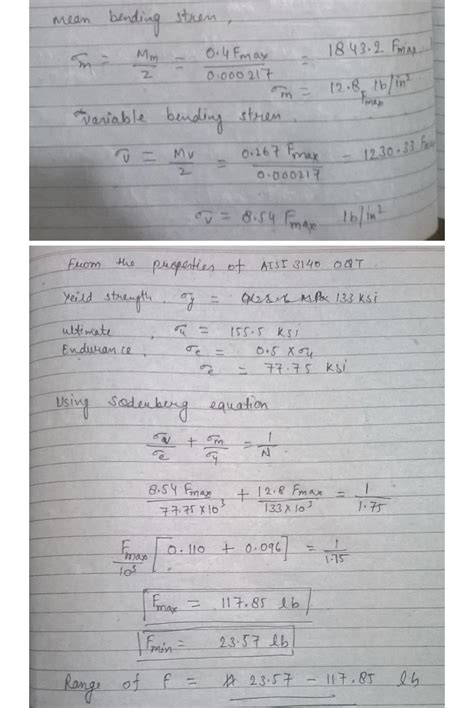 mean bending stren,
σm = Mm/2 = 0.4 Fmax/0.000217 = 1843.2 Fmax
σm = 12.8 Fmax lb/in²
variable bending stren.
σv = Mv/2 = 0.267 Fmax/0.000217 = 1230.33 Fmax
σv = 8.54 Fmax lb/in²
From the properties of AISI 3140 OQT.
Yeild strength, σy = 133 KSi
ultimate, σu = 155.5 KSi
Endurance, σe = 0.5 × σu
σe = 77.75 KSi
Using Soderberg equation
σv/σe + σm/σy = 1/N
8.54 Fmax/77.75×10³ + 12.8 Fmax/133×10³ = 1/1.75
Fmax/10³ [0.110 + 0.096] = 1/1.75
Fmax = 117.85 lb
Fmin = 23.57 lb
Range of F = 23.57 – 117.85 lb